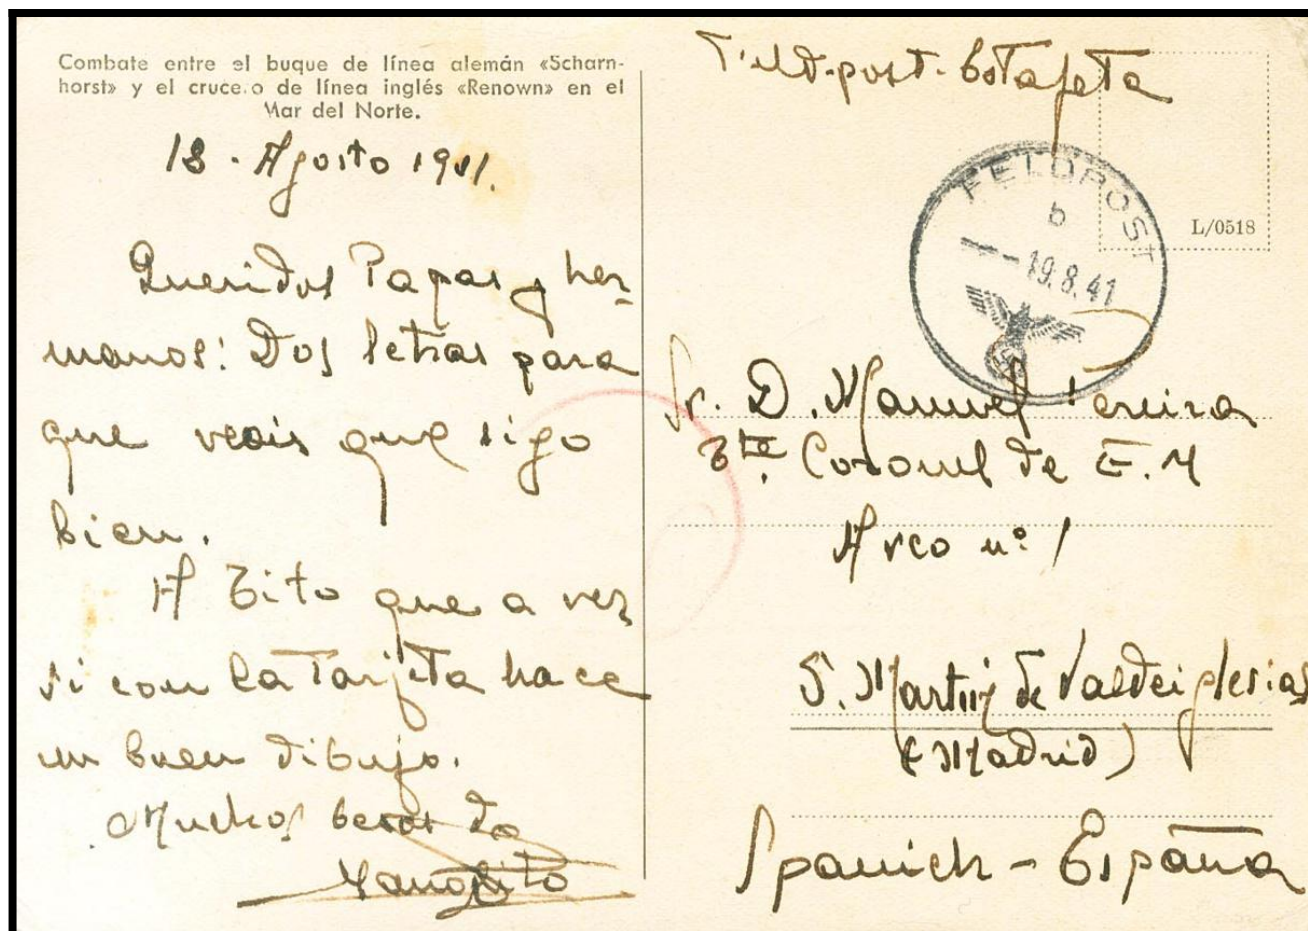 Combate entre el buque de línea alemán «Scharn-
horst» y el crucero de línea inglés «Renown» en el
Mar del Norte.
18 - Agosto 1941.
Queridos Papas y her-
manos: Dos letras para
que veais que sigo
bien.
A Tito que a ver
si con la Tarjeta hace
un buen dibujo.
Muchos besos de
Manolito
Feld-post-Estafeta
FELDPOST
b
- 19.8.41
L/0518
Sr. D. Manuel Pereira
Tte. Coronel de E.M
Arco nº 1
S. Martin de Valdeiglesias
(Madrid)
Spanich - España